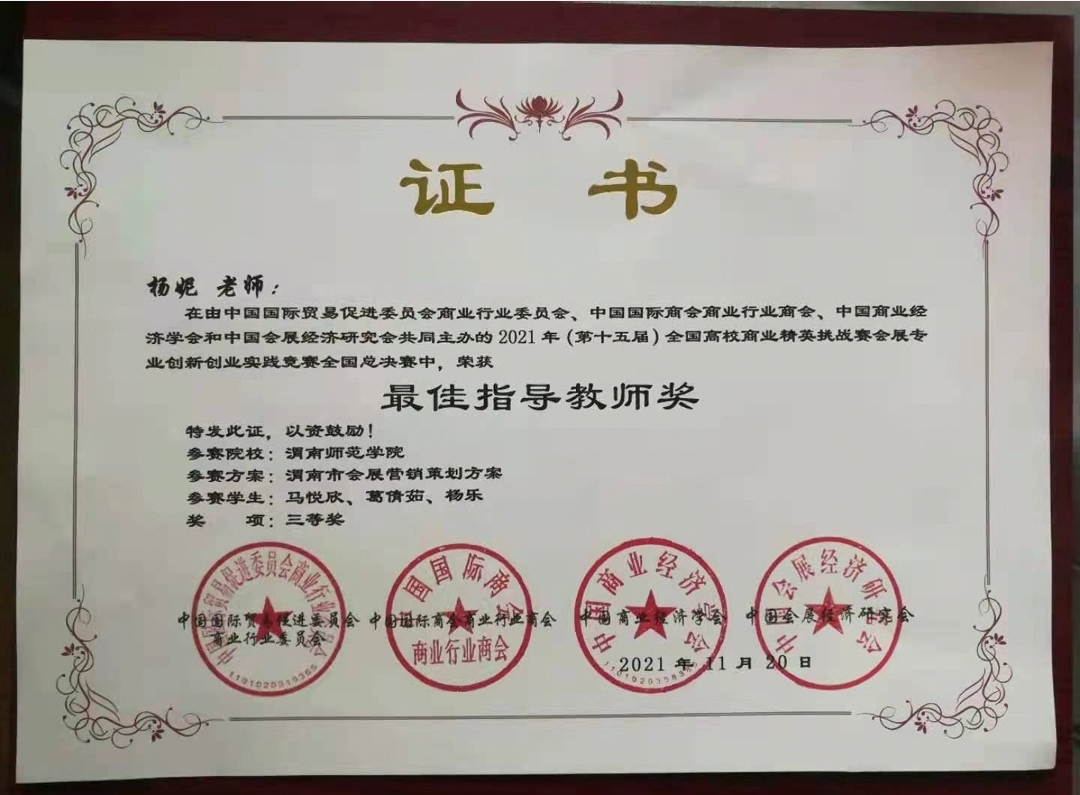 证 书
杨妮 老师：
在由中国国际贸易促进委员会商业行业委员会、中国国际商会商业行业商会、中国商业经
济学会和中国会展经济研究会共同主办的 2021 年（第十五届）全国高校商业精英挑战赛会展专
业创新创业实践竞赛全国总决赛中，荣获
最佳指导教师奖
特发此证，以资鼓励！
参赛院校：渭南师范学院
参赛方案：渭南市会展营销策划方案
参赛学生：马悦欣、葛倩茹、杨乐
奖 项：三等奖
中国国际贸易促进委员会商业行业委员会
中国国际商会
商业行业商会
中国商业经济学会
中国会展经济研究会
中国国际贸易促进委员会 中国国际商会商业行业商会 中国商业经济学会 中国会展经济研究会
商业行业委员会
2021 年 11 月 20 日